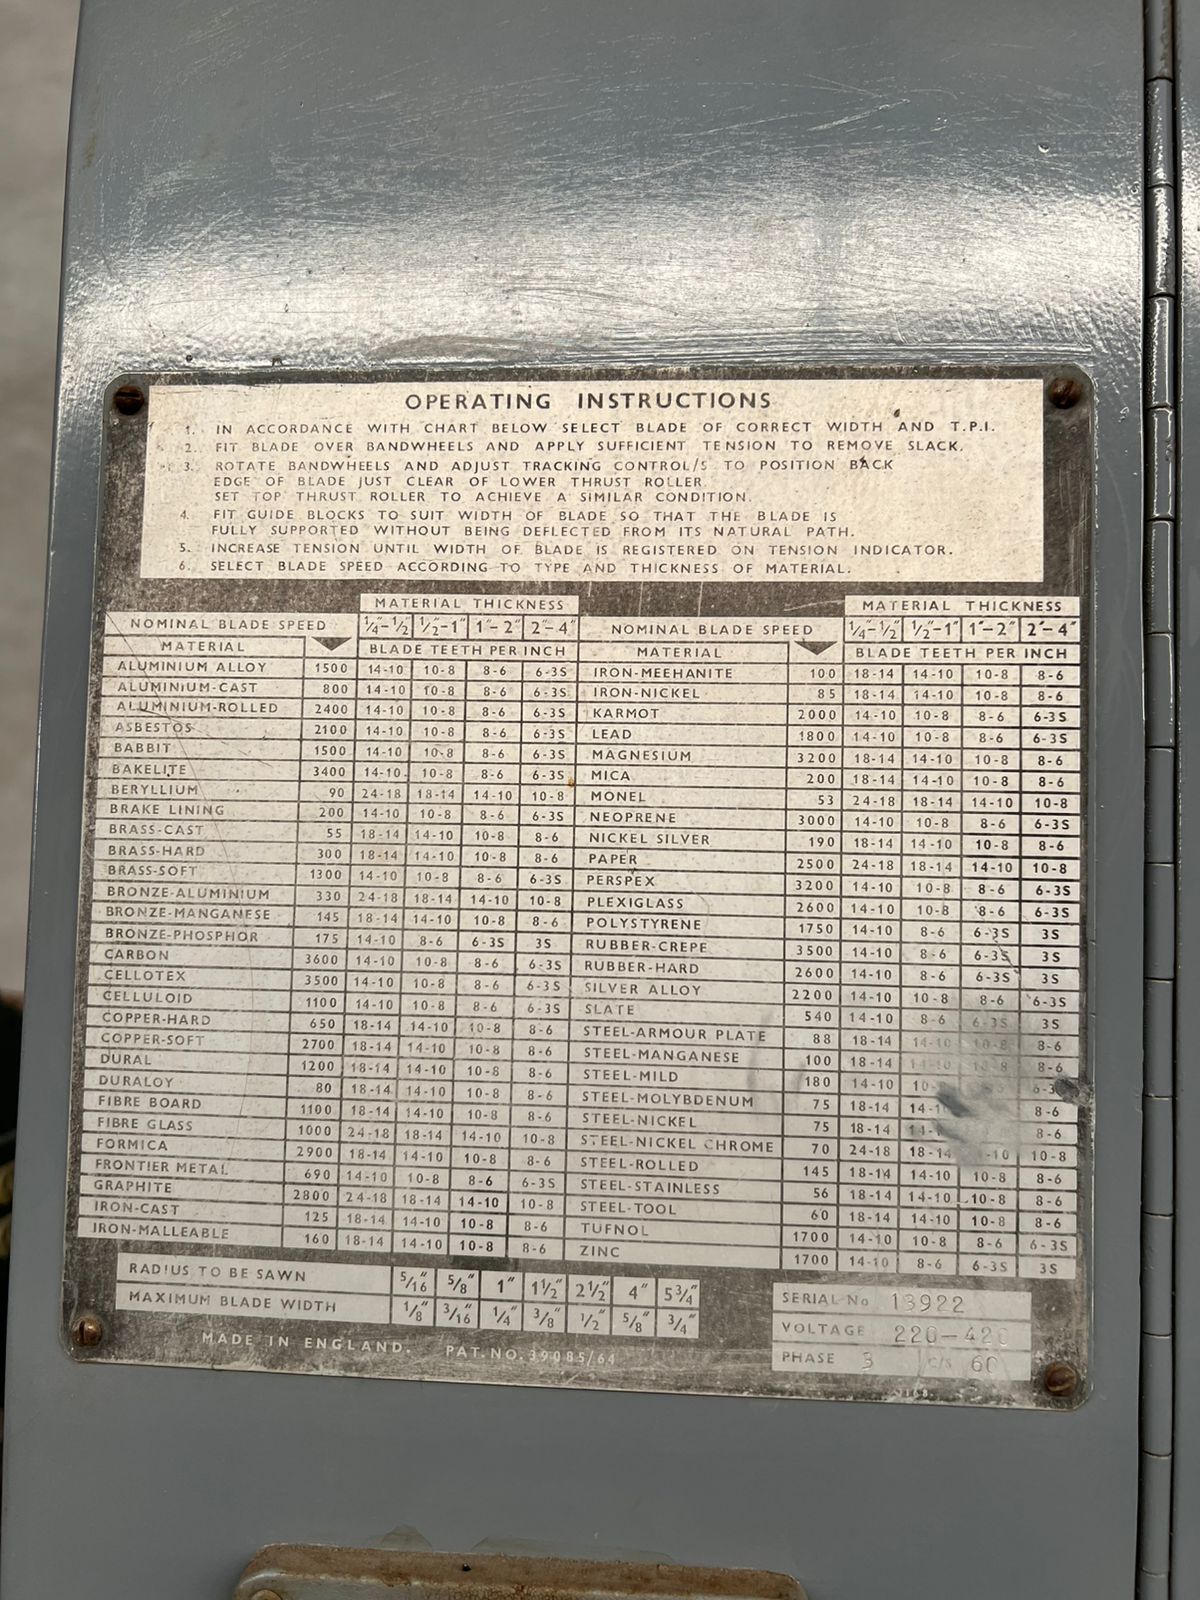 OPERATING INSTRUCTIONS
1. IN ACCORDANCE WITH CHART BELOW SELECT BLADE OF CORRECT WIDTH AND T.P.I.
2. FIT BLADE OVER BANDWHEELS AND APPLY SUFFICIENT TENSION TO REMOVE SLACK.
3. ROTATE BANDWHEELS AND ADJUST TRACKING CONTROL/S TO POSITION BACK
EDGE OF BLADE JUST CLEAR OF LOWER THRUST ROLLER.
SET TOP THRUST ROLLER TO ACHIEVE A SIMILAR CONDITION.
4. FIT GUIDE BLOCKS TO SUIT WIDTH OF BLADE SO THAT THE BLADE IS
FULLY SUPPORTED WITHOUT BEING DEFLECTED FROM ITS NATURAL PATH.
5. INCREASE TENSION UNTIL WIDTH OF BLADE IS REGISTERED ON TENSION INDICATOR.
6. SELECT BLADE SPEED ACCORDING TO TYPE AND THICKNESS OF MATERIAL.
MATERIAL THICKNESS
NOMINAL BLADE SPEED 1/4"-1/2" 1/2"-1" 1"-2" 2"-4"
MATERIAL BLADE TEETH PER INCH
ALUMINIUM ALLOY 1500 14-10 10-8 8-6 6-3S
ALUMINIUM-CAST 800 14-10 10-8 8-6 6-3S
ALUMINIUM-ROLLED 2400 14-10 10-8 8-6 6-3S
ASBESTOS 2100 14-10 10-8 8-6 6-3S
BABBIT 1500 14-10 10-8 8-6 6-3S
BAKELITE 3400 14-10 10-8 8-6 6-3S
BERYLLIUM 90 24-18 18-14 14-10 10-8
BRAKE LINING 200 14-10 10-8 8-6 6-3S
BRASS-CAST 55 18-14 14-10 10-8 8-6
BRASS-HARD 300 18-14 14-10 10-8 8-6
BRASS-SOFT 1300 14-10 10-8 8-6 6-3S
BRONZE-ALUMINIUM 330 24-18 18-14 14-10 10-8
BRONZE-MANGANESE 145 18-14 14-10 10-8 8-6
BRONZE-PHOSPHOR 175 14-10 8-6 6-3S 3S
CARBON 3600 14-10 10-8 8-6 6-3S
CELLOTEX 3500 14-10 10-8 8-6 6-3S
CELLULOID 1100 14-10 10-8 8-6 6-3S
COPPER-HARD 650 18-14 14-10 10-8 8-6
COPPER-SOFT 2700 18-14 14-10 10-8 8-6
DURAL 1200 18-14 14-10 10-8 8-6
DURALOY 80 18-14 14-10 10-8 8-6
FIBRE BOARD 1100 18-14 14-10 10-8 8-6
FIBRE GLASS 1000 24-18 18-14 14-10 10-8
FORMICA 2900 18-14 14-10 10-8 8-6
FRONTIER METAL 690 14-10 10-8 8-6 6-3S
GRAPHITE 2800 24-18 18-14 14-10 10-8
IRON-CAST 125 18-14 14-10 10-8 8-6
IRON-MALLEABLE 160 18-14 14-10 10-8 8-6
MATERIAL THICKNESS
NOMINAL BLADE SPEED 1/4"-1/2" 1/2"-1" 1"-2" 2"-4"
MATERIAL BLADE TEETH PER INCH
IRON-MEEHANITE 100 18-14 14-10 10-8 8-6
IRON-NICKEL 85 18-14 14-10 10-8 8-6
KARMOT 2000 14-10 10-8 8-6 6-3S
LEAD 1800 14-10 10-8 8-6 6-3S
MAGNESIUM 3200 18-14 14-10 10-8 8-6
MICA 200 18-14 14-10 10-8 8-6
MONEL 53 24-18 18-14 14-10 10-8
NEOPRENE 3000 14-10 10-8 8-6 6-3S
NICKEL SILVER 190 18-14 14-10 10-8 8-6
PAPER 2500 24-18 18-14 14-10 10-8
PERSPEX 3200 14-10 10-8 8-6 6-3S
PLEXIGLASS 2600 14-10 10-8 8-6 6-3S
POLYSTYRENE 1750 14-10 8-6 6-3S 3S
RUBBER-CREPE 3500 14-10 8-6 6-3S 3S
RUBBER-HARD 2600 14-10 8-6 6-3S 3S
SILVER ALLOY 2200 14-10 10-8 8-6 6-3S
SLATE 540 14-10 8-6 6-3S 3S
STEEL-ARMOUR PLATE 88 18-14 14-10 10-8 8-6
STEEL-MANGANESE 100 18-14 8-6
STEEL-MILD 180 14-10
STEEL-MOLYBDENUM 75 18-14 8-6
STEEL-NICKEL 75 18-14 8-6
STEEL-NICKEL CHROME 70 24-18 18-14 10-8
STEEL-ROLLED 145 18-14 14-10 10-8 8-6
STEEL-STAINLESS 56 18-14 14-10 10-8 8-6
STEEL-TOOL 60 18-14 14-10 10-8 8-6
TUFNOL 1700 14-10 10-8 8-6 6-3S
ZINC 1700 14-10 8-6 6-3S 3S
RADIUS TO BE SAWN 5/16" 5/8" 1" 1 1/2" 2 1/2" 4" 5 3/4"
MAXIMUM BLADE WIDTH 1/8" 3/16" 1/4" 3/8" 1/2" 5/8" 3/4"
MADE IN ENGLAND. PAT. NO. 39085/64
SERIAL No 13922
VOLTAGE 220-420
PHASE 3 C/S 60